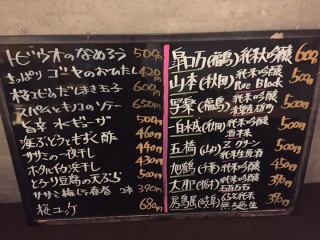 トビウオのなめろう 500円
さっぱりゴーヤのおひたし 420円
桜エビだしまき玉子 600円
スパイシーキノコソテー 650円
旨辛 水ギョーザ 500円
海ぶどうともずく酢 460円
ササミの一夜干し 440円
ホタルイカ沖干し 430円
とろり豆腐の天ぷら 500円
ササミ梅しそ春巻 2本 390円
桜ユッケ 680円
阜口万(福島)純米吟醸 600円
山本(秋田)純米吟醸 Pure Black 600円
写楽(福島)純米吟醸 500円
白木成(福岡)純米吟醸 500円
五橋(山口) Zグリーン 純米生原酒 500円
旭鶴(千葉)純米吟醸 450円
大那(栃木)純米吟醸 390円
房島屋(岐阜)純米吟醸 無ろ過生 390円